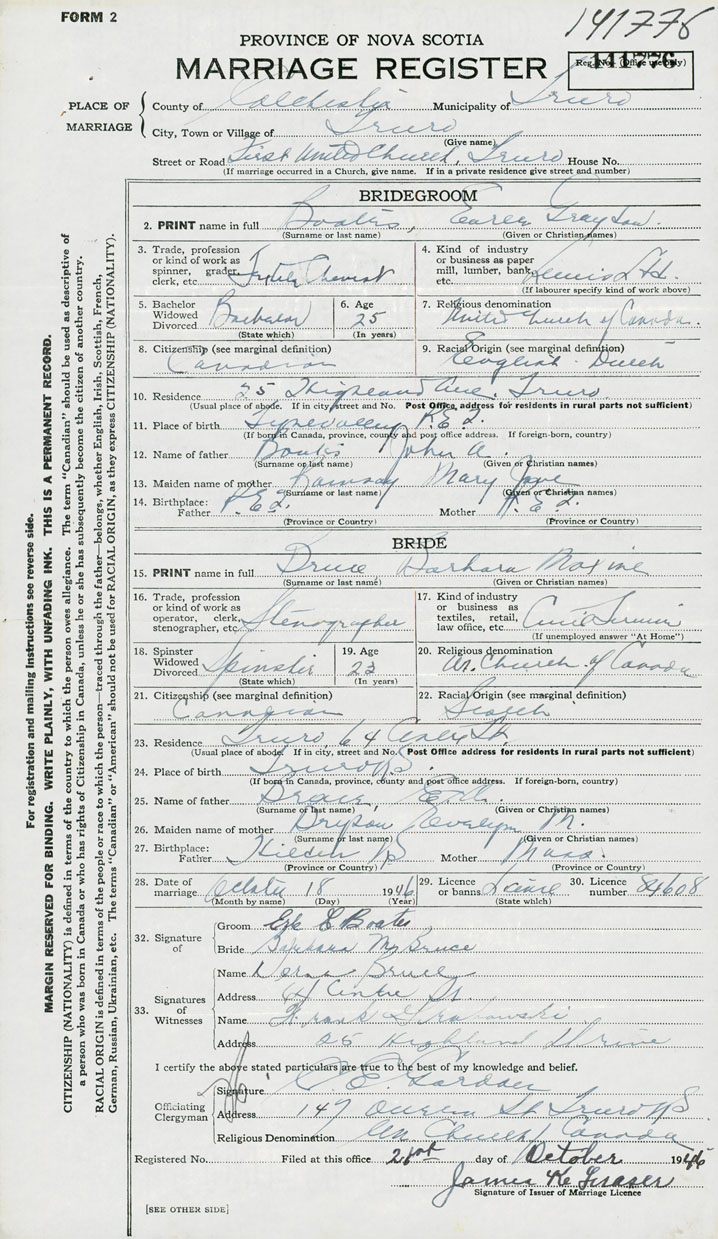 FORM 2
141776
PROVINCE OF NOVA SCOTIA
MARRIAGE REGISTER
Reg. No. (Office use only) 141776
PLACE OF MARRIAGE
County of Colchester Municipality of Truro
City, Town or Village of Truro
(Give name)
Street or Road First United Church, Truro House No.
(If marriage occurred in a Church, give name. If in a private residence give street and number)
BRIDEGROOM
2. PRINT name in full Boates, Grayson
(Surname or last name) (Given or Christian names)
3. Trade, profession or kind of work as spinner, grader, clerk, etc. Textile Chemist
4. Kind of industry or business as paper mill, lumber, bank, etc.
(If labourer specify kind of work above)
5. Bachelor Widowed Divorced Bachelor
(State which)
6. Age 25
(In years)
7. Religious denomination United Church of Canada
8. Citizenship (see marginal definition) Canadian
9. Racial Origin (see marginal definition) English Dutch
10. Residence 25 Highland Ave. Truro
(Usual place of abode. If in city, street and No. Post Office address for residents in rural parts not sufficient)
11. Place of birth P.E.I.
(If born in Canada, province, county and post office address. If foreign-born, country)
12. Name of father Boates John A.
(Surname or last name) (Given or Christian names)
13. Maiden name of mother Ramsay Mary Jane
(Surname or last name) (Given or Christian names)
14. Birthplace: Father P.E.I. Mother P.E.I.
(Province or Country) (Province or Country)
BRIDE
15. PRINT name in full Bruce Barbara Maxine
(Surname or last name) (Given or Christian names)
16. Trade, profession or kind of work as operator, clerk, stenographer, etc. Stenographer
17. Kind of industry or business as textiles, retail, law office, etc. Civil Service
(If unemployed answer "At Home")
18. Spinster Widowed Divorced Spinster
(State which)
19. Age 23
(In years)
20. Religious denomination Un. Church of Canada
21. Citizenship (see marginal definition) Canadian
22. Racial Origin (see marginal definition) Scotch
23. Residence Truro, 64 St.
(Usual place of abode. If in city, street and No. Post Office address for residents in rural parts not sufficient)
24. Place of birth Truro NS.
(If born in Canada, province, county and post office address. If foreign-born, country)
25. Name of father Bruce
(Surname or last name) (Given or Christian names)
26. Maiden name of mother Bryson Evelyn M.
(Surname or last name) (Given or Christian names)
27. Birthplace: Father Hilden NS Mother Mass.
(Province or Country) (Province or Country)
28. Date of marriage October 18 1946
(Month by name) (Day) (Year)
29. Licence or banns Licence
(State which)
30. Licence number 84608
32. Signature of
Groom Boates
Bride Barbara M. Bruce
33. Signatures of Witnesses
Name Bruce
Address Centre St.
Name Frank Grabowski
Address 25 Highland Drive
I certify the above stated particulars are true to the best of my knowledge and belief.
Officiating Clergyman
Signature
Address 147 Queen St Truro NS
Religious Denomination Un Church Canada
Registered No. Filed at this office 21st day of October 1946
James K Fraser
Signature of Issuer of Marriage Licence
[SEE OTHER SIDE]
For registration and mailing instructions see reverse side.
MARGIN RESERVED FOR BINDING. WRITE PLAINLY, WITH UNFADING INK. THIS IS A PERMANENT RECORD.
CITIZENSHIP (NATIONALITY) is defined in terms of the country to which the person owes allegiance. The term "Canadian" should be used as descriptive of
a person who was born in Canada or who has rights of Citizenship in Canada, unless he or she has subsequently become the citizen of another country.
RACIAL ORIGIN is defined in terms of the people or race to which the person—traced through the father—belongs, whether English, Irish, Scottish, French,
German, Russian, Ukrainian, etc. The terms "Canadian" or "American" should not be used for RACIAL ORIGIN, as they express CITIZENSHIP (NATIONALITY).